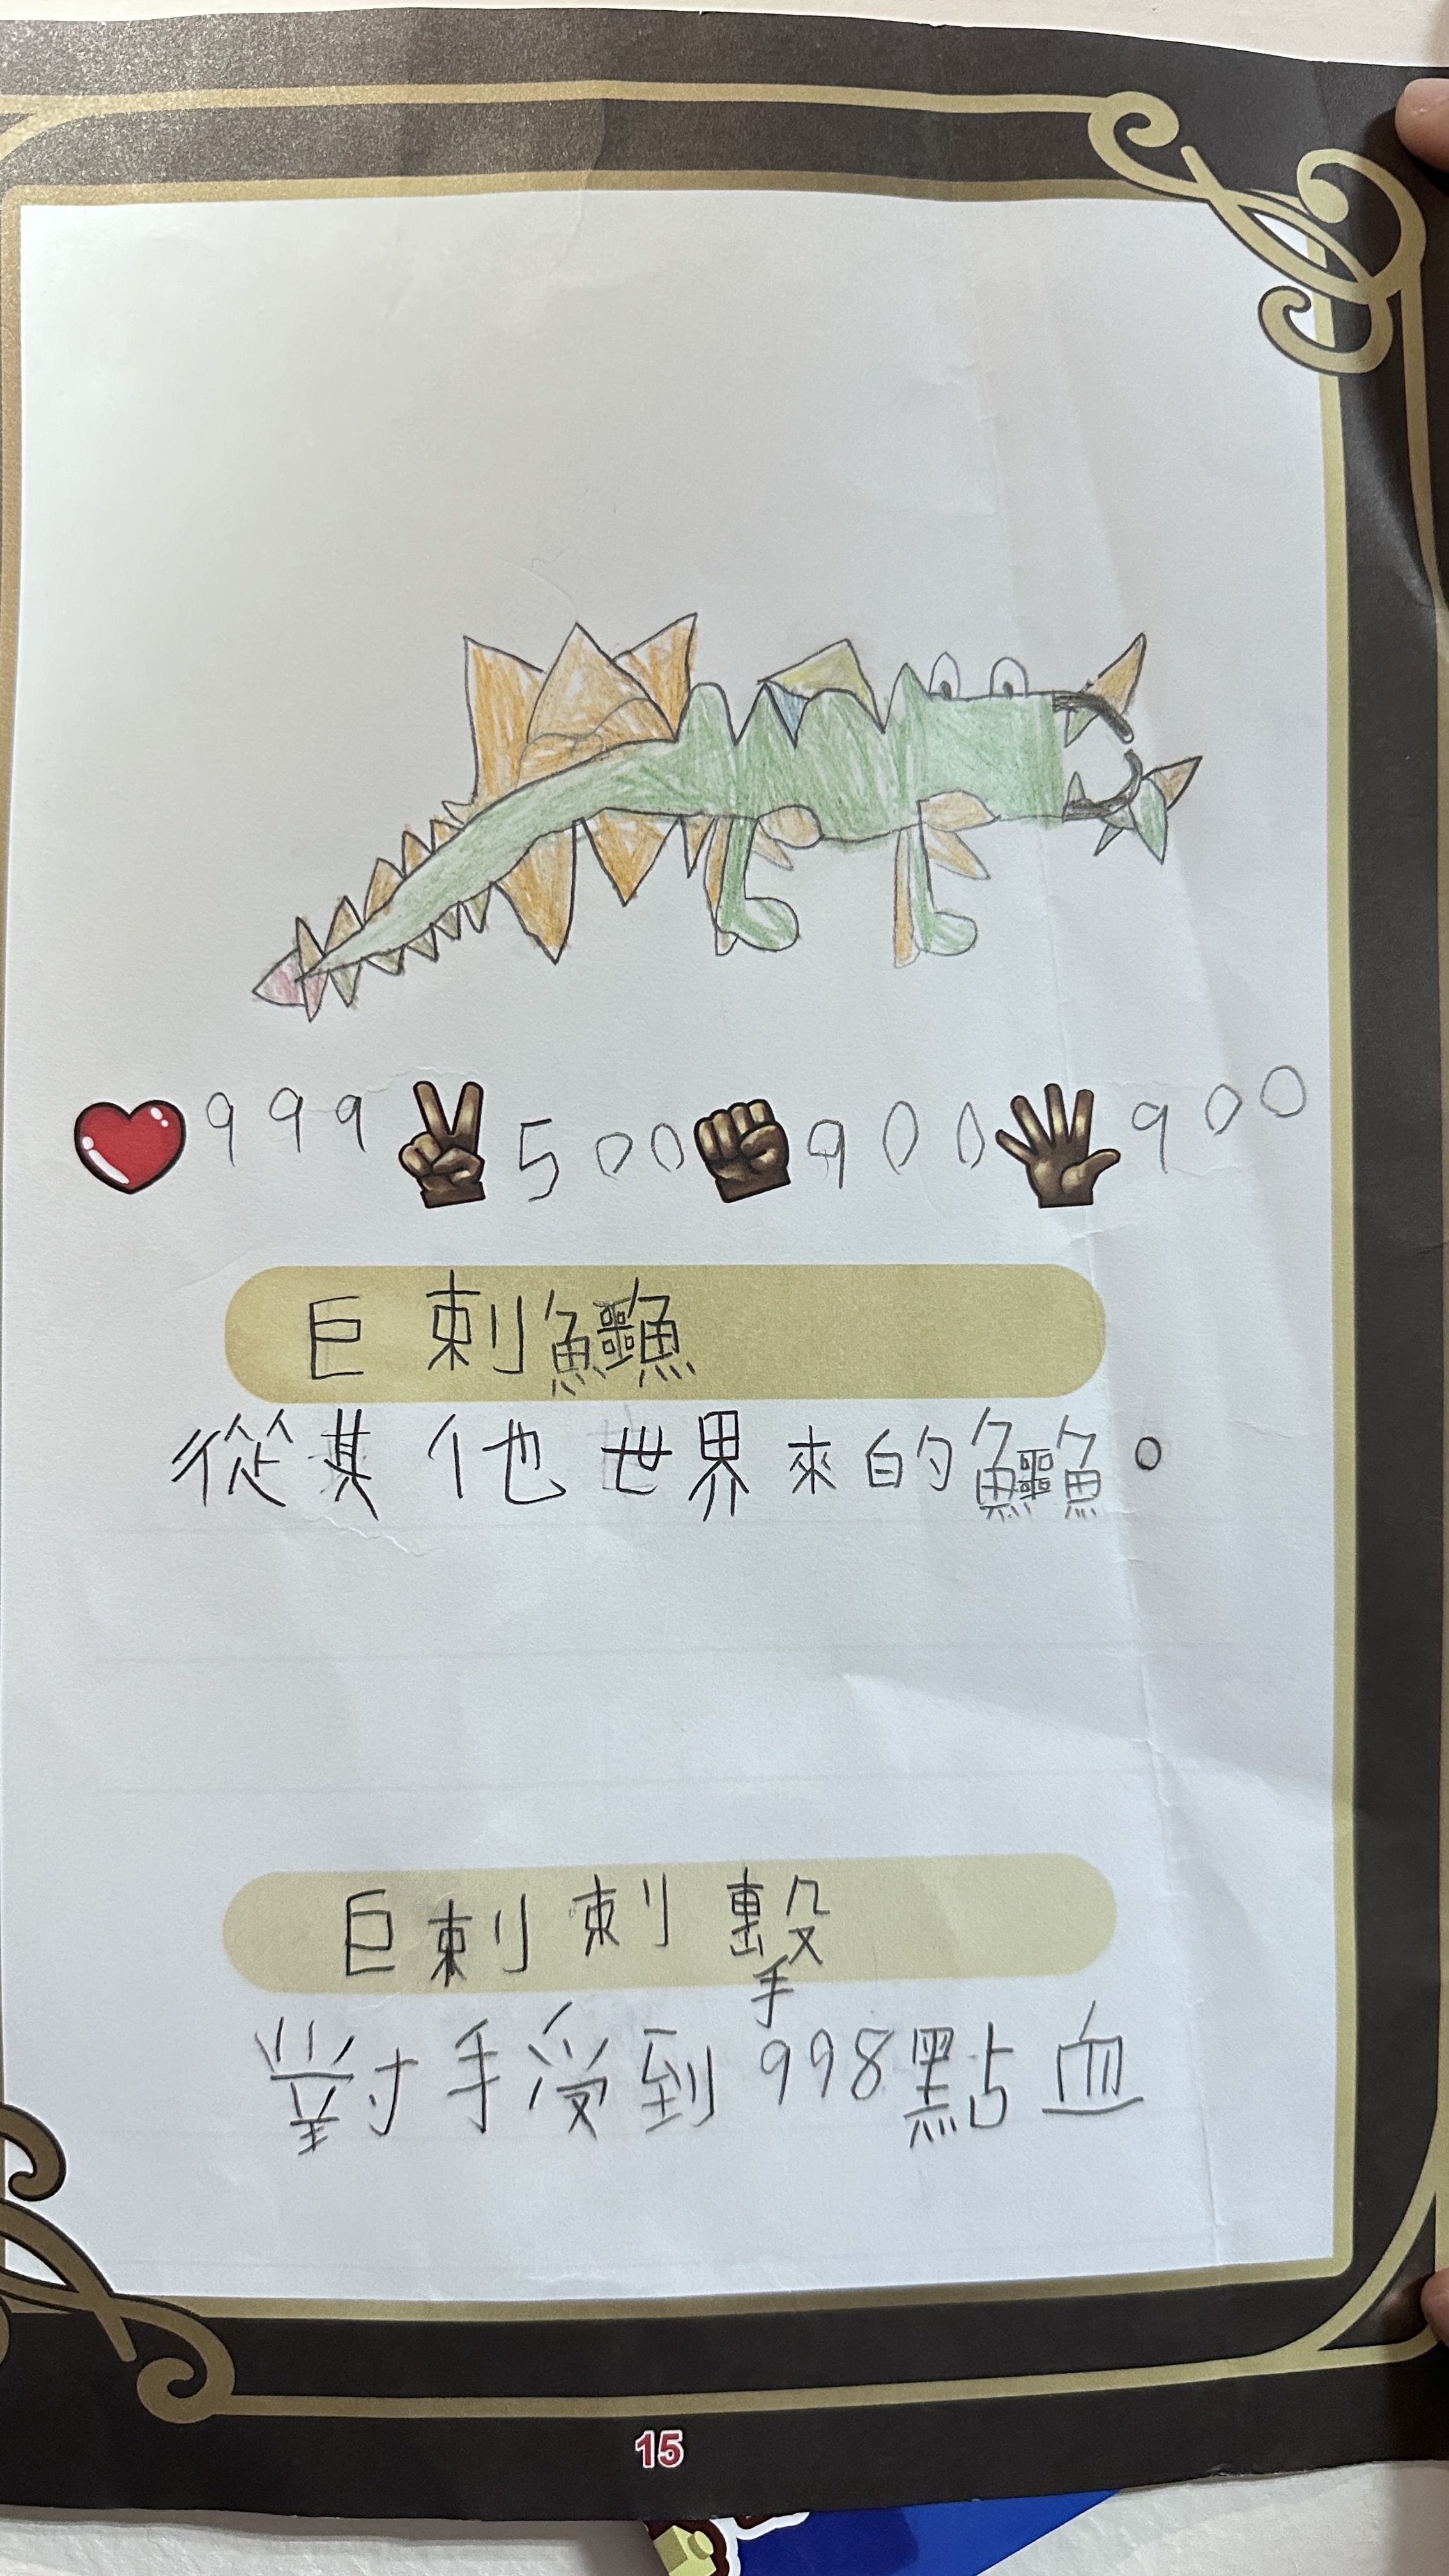 999 500 900 900
巨刺鱷魚
從其他世界來的鱷魚。
巨刺刺擊
對手受到998點血
15